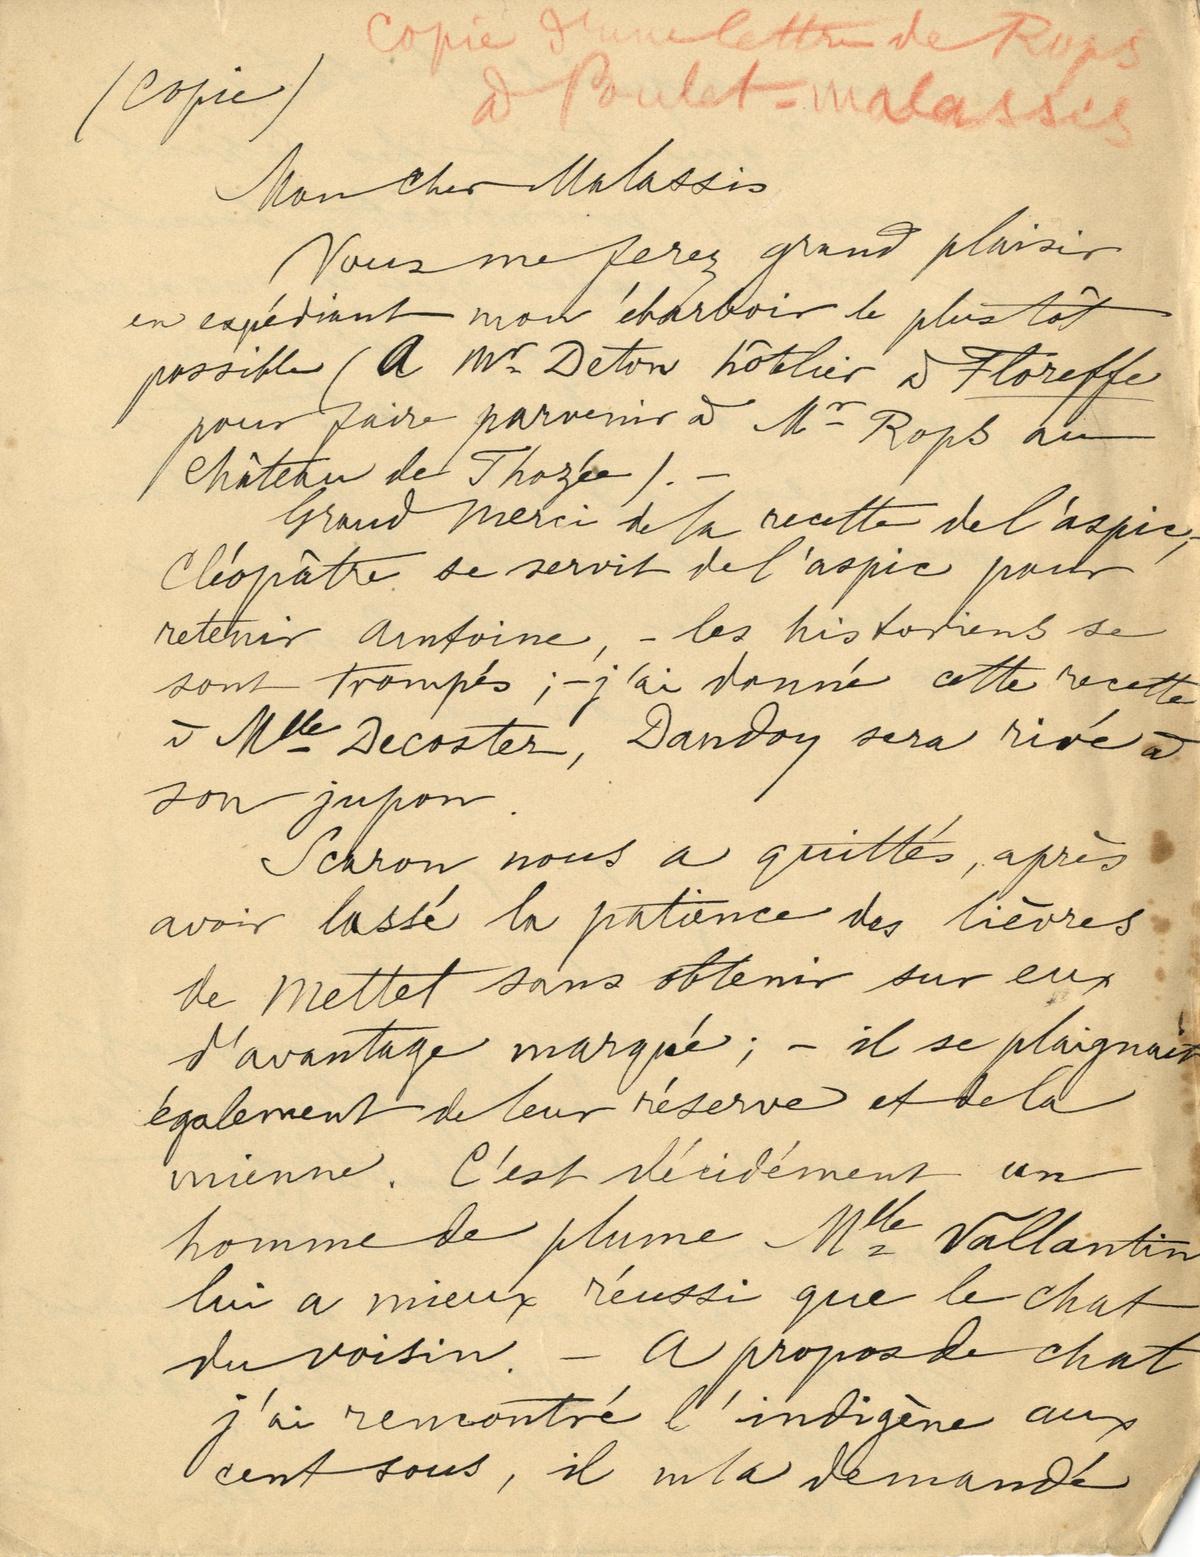 Copie d'une lettre de Rops
à Poulet-malassis
(Copie)
Mon Cher Malassis
Vous me ferez grand plaisir
en expédiant mon ébarboir le plus tôt
possible (A Mr Deton hôtelier à Floreffe
pour faire parvenir à Mr Rops au
Château de Thozée). –
Grand Merci de la recette de l'aspic, –
Cléopâtre se servit de l'aspic pour
retenir Antoine, – les historiens se
sont trompés ; – j'ai donné cette recette
à Mlle Decoster, Dandoy sera rivé à
son jupon.
Scaron nous a quittés, après
avoir lassé la patience des lièvres
de Mettet sans obtenir sur eux
d'avantage marqué ; – il se plaignait
également de leur réserve et de la
mienne. C'est décidément un
homme de plume Mlle Vallantin
lui a mieux réussi que le chat
du voisin. – A propos de chat
j'ai rencontré l'indigène aux
cent sous, il m'a demandé